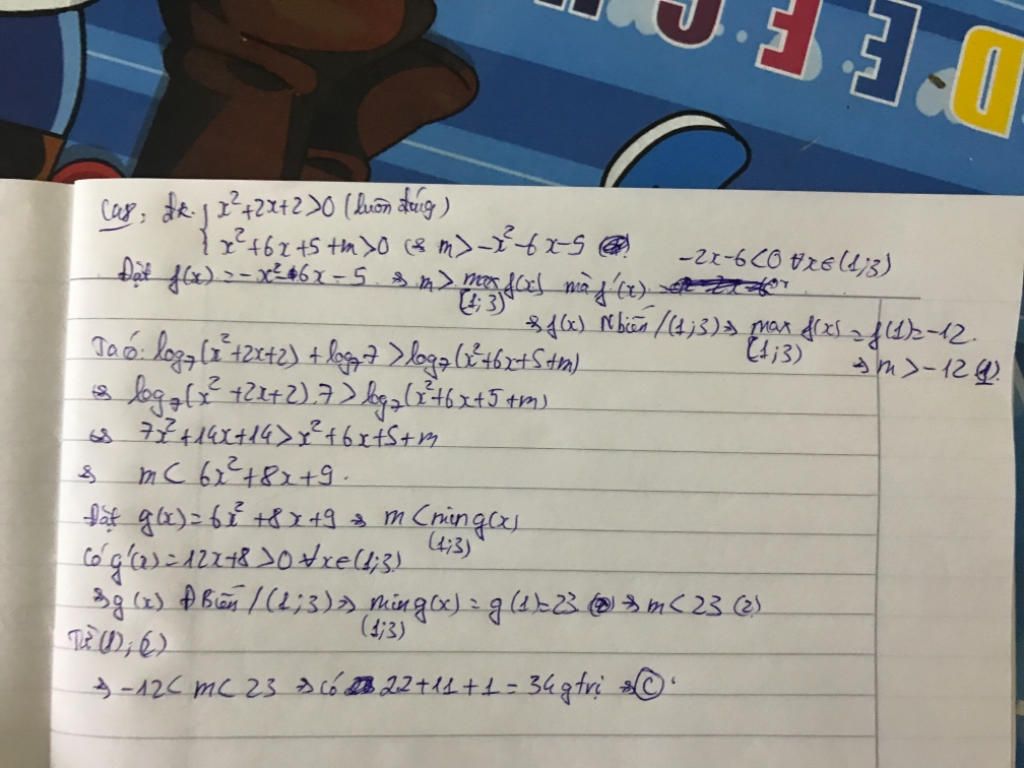 D E F G H
Câu 8: đk: { x²+2x+2>0 (luôn đúng)
x²+6x+5+m>0 ⇔ m>-x²-6x-5
-2x-6<0 ∀x∈(1;3)
Đặt f(x)=-x²-6x-5 ⇒ m> max f(x) mà f'(x)
(1;3)
⇒ f(x) Nbiến/(1;3) ⇒ max f(x) = f(1)=-12.
(1;3)
⇒ m>-12 (1).
Ta có: log₇(x²+2x+2)+log₇7>log₇(x²+6x+5+m)
⇔ log₇(x²+2x+2).7>log₇(x²+6x+5+m)
⇔ 7x²+14x+14>x²+6x+5+m
⇔ m< 6x²+8x+9.
Đặt g(x)=6x²+8x+9 ⇒ m<min g(x)
(1;3)
Có g'(x)=12x+8>0 ∀x∈(1;3)
⇒ g(x) ĐBiến/(1;3) ⇒ min g(x) = g(1)=23 ⇒ m<23 (2)
(1;3)
Từ (1), (2)
⇒ -12< m< 23 ⇒ có 22+11+1=34 gtrị ⇒ C